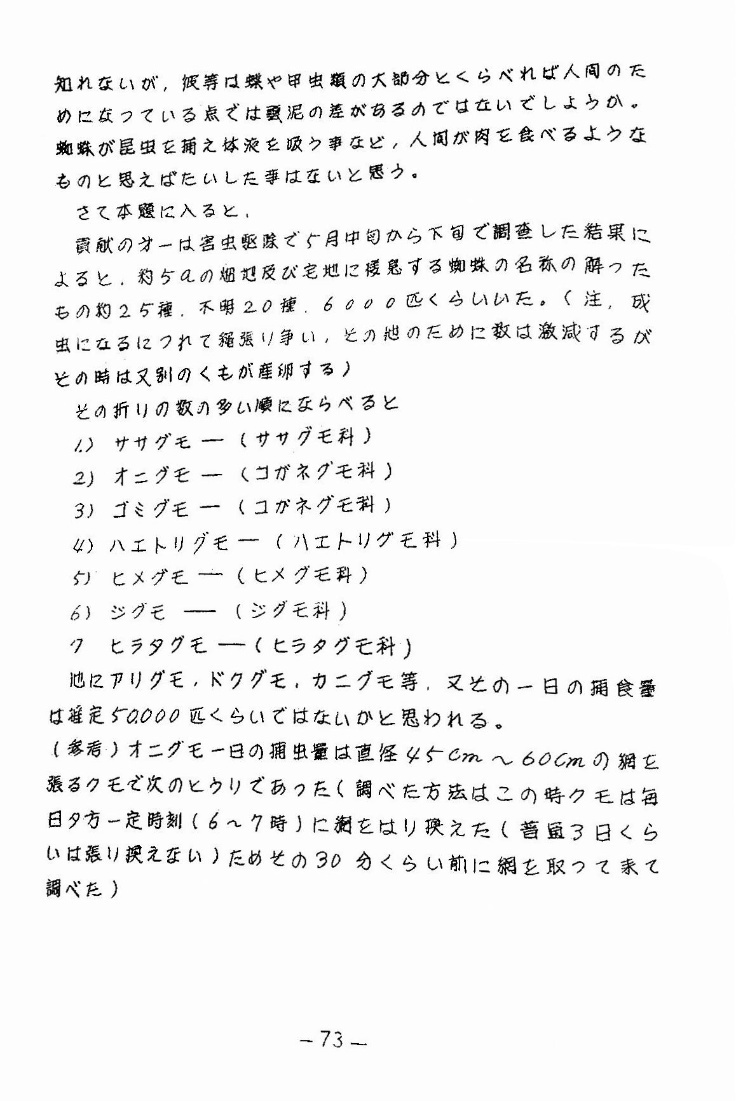 知れないが，彼等は蝶や甲虫類の大部分とくらべれば人間のた
めになっている点では雲泥の差があるのではないでしょうか。
蜘蛛が昆虫を捕え体液を吸う事など，人間が肉を食べるような
ものと思えばたいした事はないと思う。
さて本題に入ると，
貢献の才一は害虫駆除で5月中旬から下旬で調査した結果に
よると，約5aの畑地及び宅地に棲息する蜘蛛の名称の解った
もの約25種，不明20種，6000匹くらいいた。（注，成
虫になるにつれて縄張り争い，その他のために数は激減するが
その時は又別のくもが産卵する）
その折りの数の多い順にならべると
1） ササグモ ー（ササグモ科）
2） オニグモ ー（コガネグモ科）
3） ゴミグモ ー（コガネグモ科）
4） ハエトリグモ ー（ハエトリグモ科）
5） ヒメグモ ー（ヒメグモ科）
6） ジグモ ー（ジグモ科）
7 ヒラタグモ ー（ヒラタグモ科）
他にアリグモ，ドクグモ，カニグモ等，又その一日の捕食量
は推定50,000匹くらいではないかと思われる。
（参考）オニグモ一日の捕虫量は直径45cm～60cmの網を
張るクモで次のとうりであった（調べた方法はこの時クモは毎
日夕方一定時刻（6～7時）に網をはり換えた（普通3日くら
いは張り換えない）ためその30分くらい前に網を取って来て
調べた）
－73－